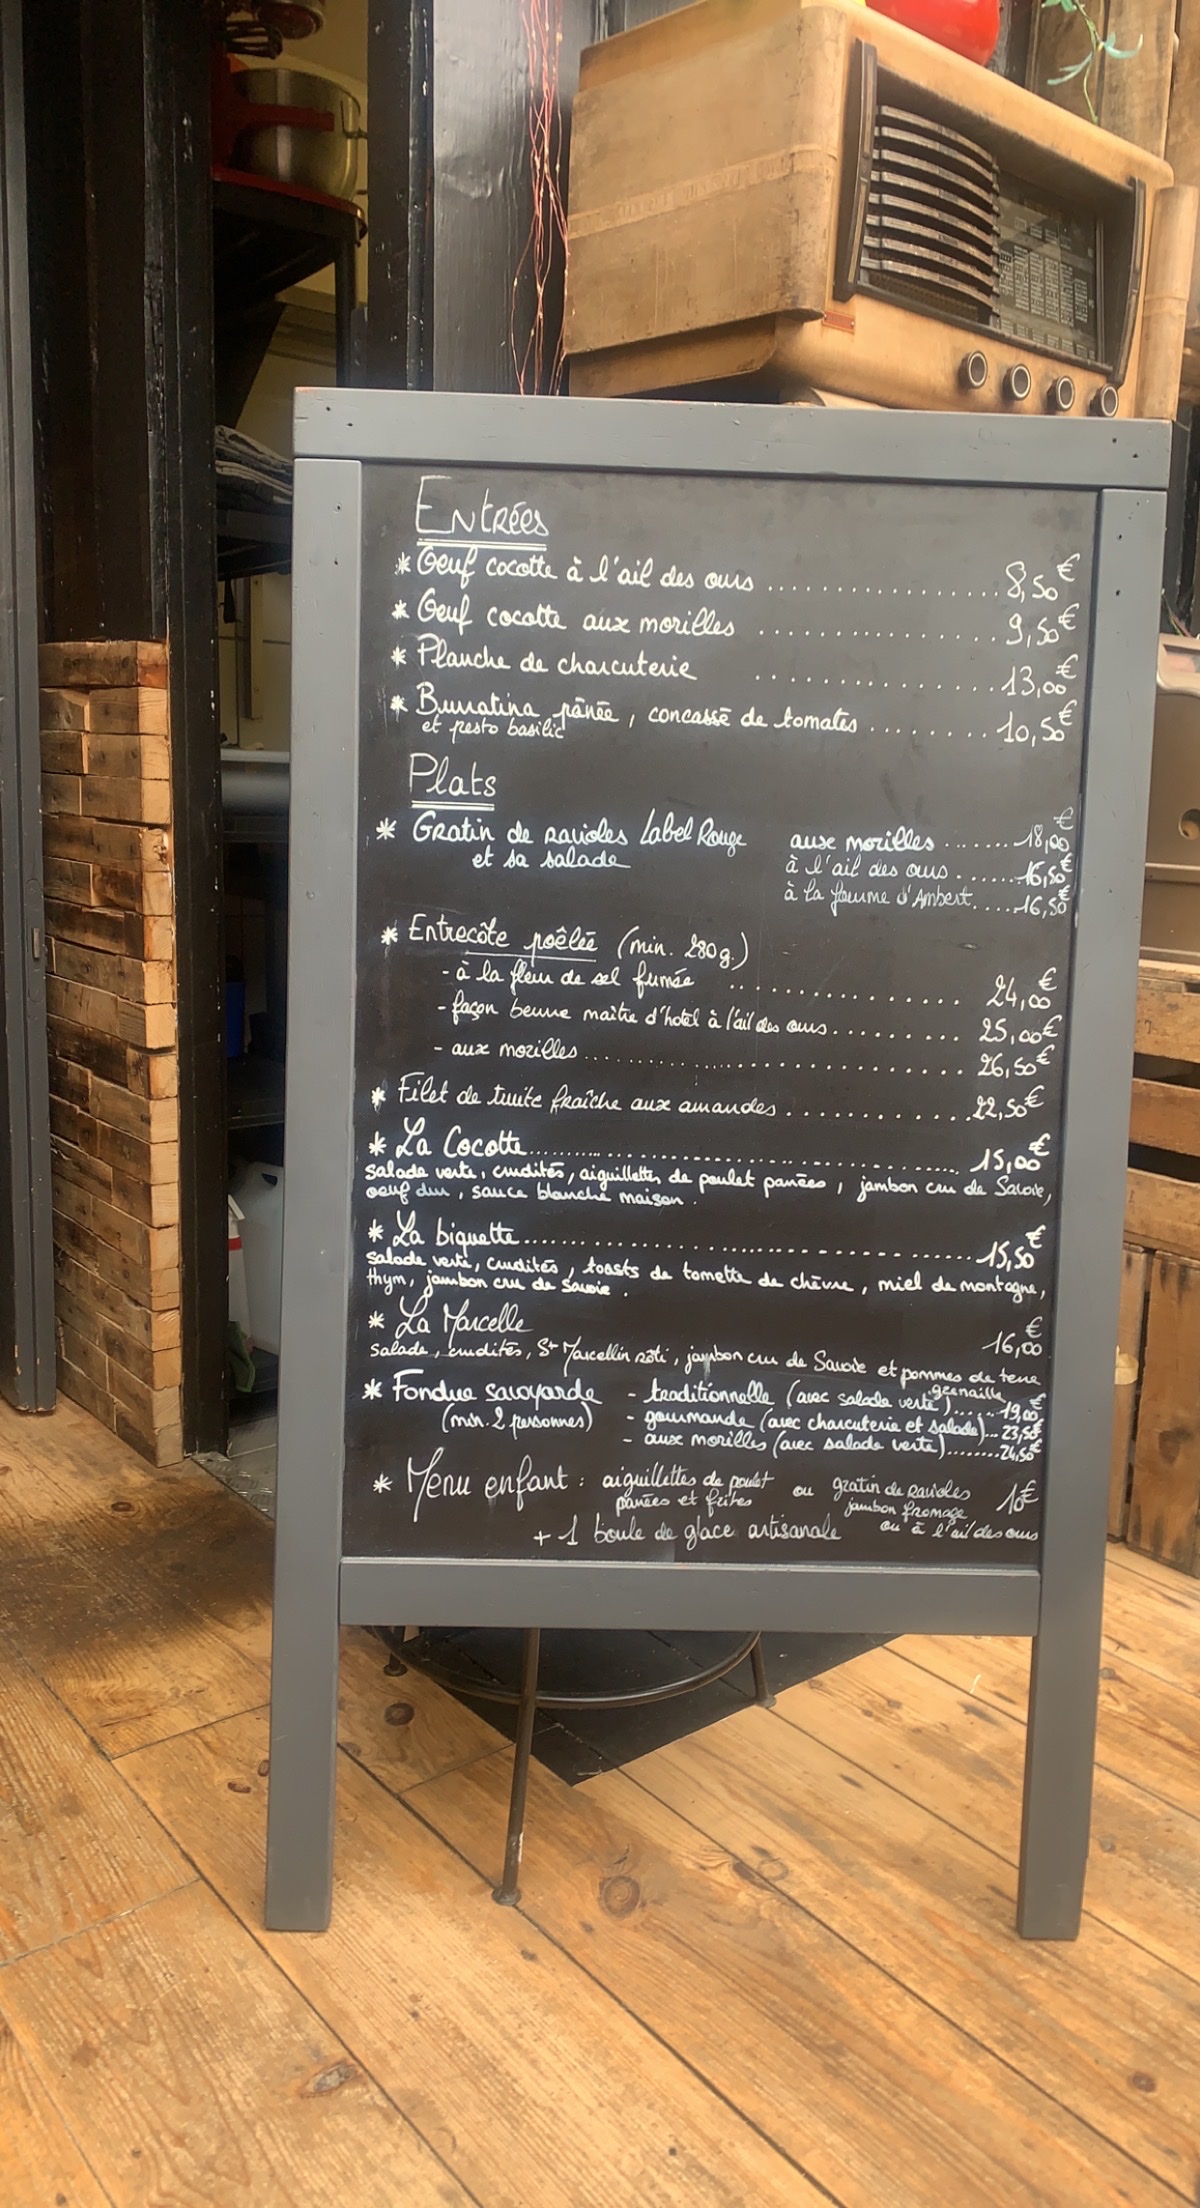 Entrées
* Oeuf cocotte à l'ail des ours .................. 8,50€
* Oeuf cocotte aux morilles ................ 9,50€
* Planche de charcuterie ............... 13,00€
* Burratina pânée, concassé de tomates ........ 10,50€
et pesto basilic
Plats
* Gratin de ravioles Label Rouge aux morilles ....... 18,00€
et sa salade à l'ail des ours ....... 16,50€
à la fourme d'Ambert ..... 16,50€
* Entrecôte poêlée (min. 280g.)
- à la fleur de sel fumée ................ 24,00€
- façon beurre maître d'hotel à l'ail des ours ......... 25,00€
- aux morilles .............................. 26,50€
* Filet de truite fraîche aux amandes ............ 22,50€
* La Cocotte .................................... 15,00€
salade verte, crudités, aiguillettes de poulet panées, jambon cru de Savoie,
oeuf dur, sauce blanche maison.
* La biquette .................................... 15,50€
salade verte, crudités, toasts de tomette de chèvre, miel de montagne,
thym, jambon cru de Savoie.
* La Marcelle 16,00€
salade, crudités, St Marcellin rôti, jambon cru de Savoie et pommes de terre
grenaille
* Fondue savoyarde - traditionnelle (avec salade verte) ...... 19,00€
(min. 2 personnes) - gourmande (avec charcuterie et salade) ... 23,50€
- aux morilles (avec salade verte) ......... 24,50€
* Menu enfant : aiguillettes de poulet ou gratin de ravioles 10€
panées et frites jambon fromage
+ 1 boule de glace artisanale ou à l'ail des ours